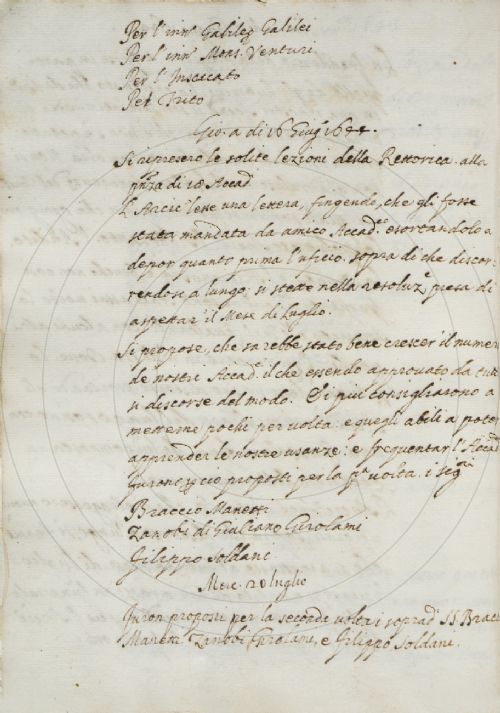 Per l' inn.º Galileo Galilei
Per l' inn.º Mons. Venturi
Per l' Insacato
Per Trito
Gio. a di 16 Giug.º 1644.
Si ripresero le solite lezioni della Rettorica. alla
pñza di 18 Accad.
L'Arcic.º lesse una lettera, fingendo, che gli fosse
stata mandata da amico Accad.º esortandolo a
depor quanto prima l'uficio. sopra di che discor-
rendosi a lungo, si stette nella resoluz.e presa di
aspettar' il Mese di Luglio.
Si propose, che sarebbe stato bene crescer il numer
de nostri Accad. il che essendo approvato da tutti
si discorse del modo. E i piu consigliarono a
metterne pochi per volta: e quegli abili a poter
apprender le nostre usanze: e frequentar l'Accad
furono p̱ ciò proposti per la p.ª volta. i seg.ti
Braccio Manetti
Zanobi di Giuliano Girolami
Filippo Soldani
Merc. 20 luglio
Furon proposti per la seconda volta i soprad. SS. Bracc
Manetti Zanobi Girolami, e Filippo Soldani.